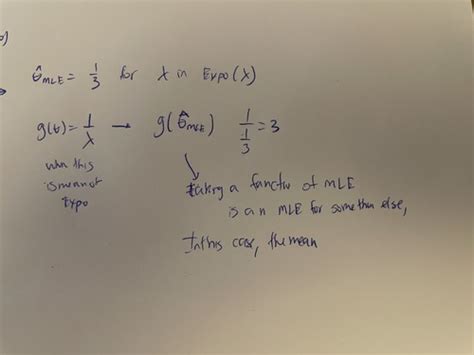 b)
θ̂_MLE = 1/3 for λ in Expo(λ)
g(θ) = 1/λ → g(θ̂_MLE) 1/(1/3) = 3
when this
is mean of
Expo
taking a function of MLE
is an MLE for something else,
In this case, the mean